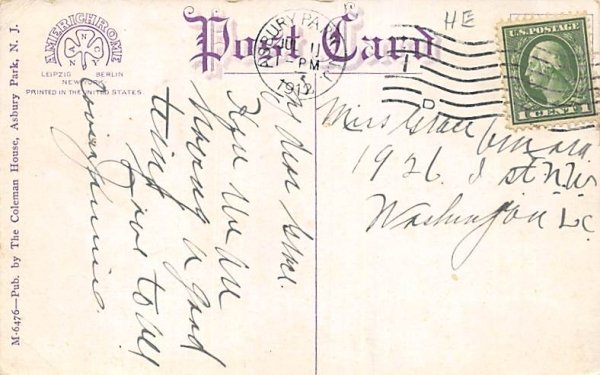 AMERICHROME
ANCN
LEIPZIG BERLIN
NEW YORK
PRINTED IN THE UNITED STATES.
Post Card
ASBURY PARK
1 - PM
1912
HE
U.S. POSTAGE
1 CENT 1
M-6476—Pub. by The Coleman House, Asbury Park, N. J.
My dear Grace.
Hope we are
having a good
time
Love to all
Cousin Jennie.
Miss Grace
1926. I st N.W.
Washington D.C.